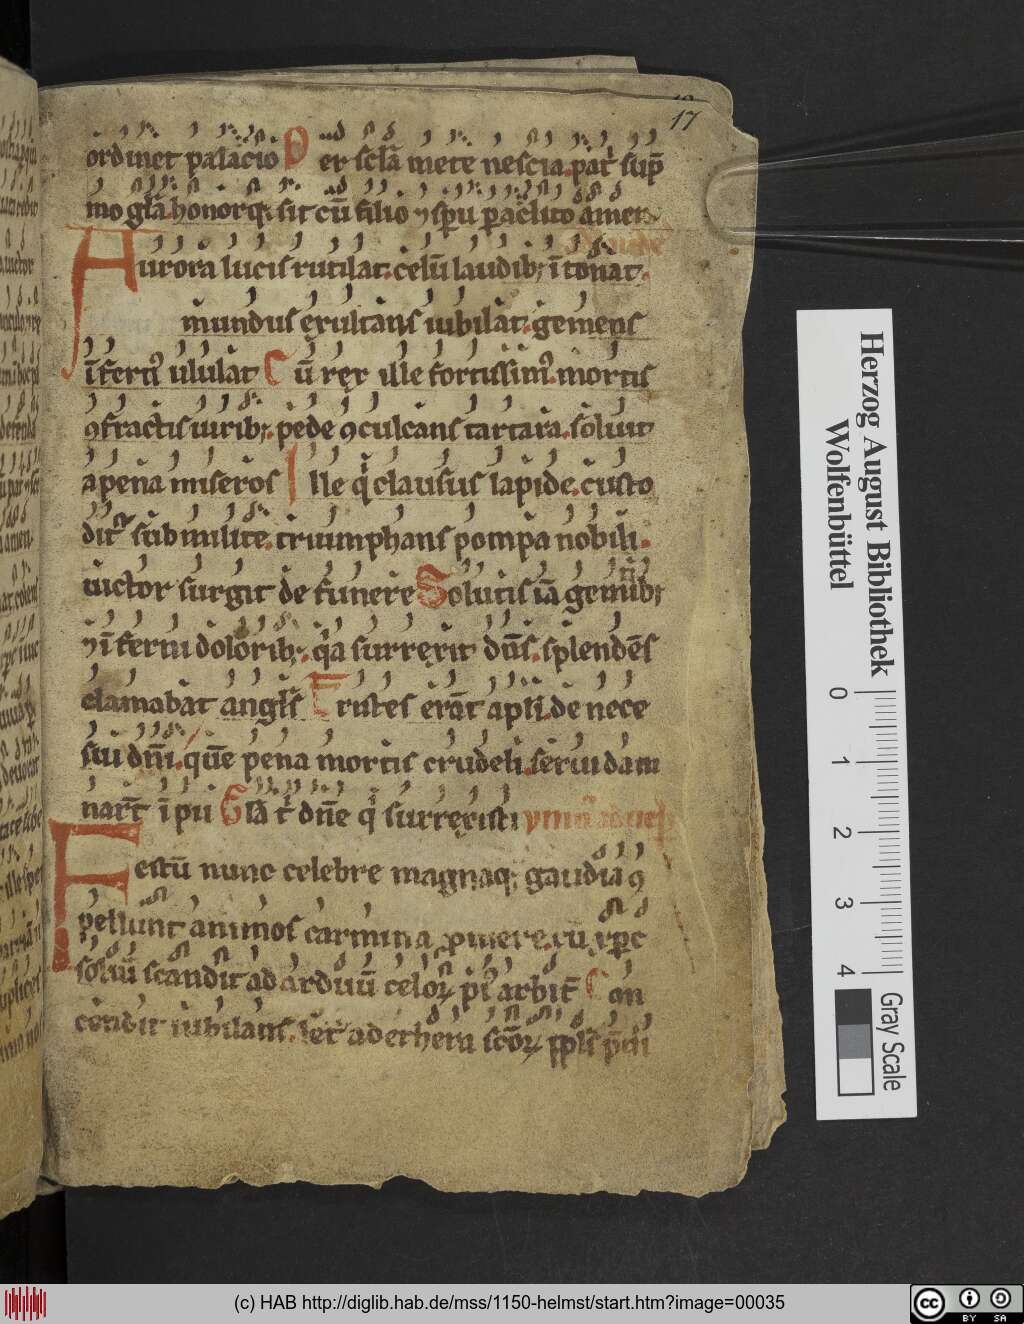 17
ordinet palacio Per sc̄lā mete nescia. pat᷑ sūp̄
mo gl̄a honorq; sit cū filio ⁊ spū paclito amen
Aurora lucis rutilat. celū laudib; ītonat.
mundus exultans iubilat. gemens
īfern᷒ ululat Cū rex ille fortissim᷒. mortis
ꝯfractis uirib;. pede ꝯculcans tartara. soluit
apena miseros Ille q̇ clausus lapide. custo
dit᷑ sub milite. triumphans pompa nobili.
uictor surgit de funere Solutis iā gemitib;
⁊ īferni dolorib;. q̇a surrexit dn̄s. splendēs
clamabat angl̄s Tristes erāt apl̄i. de nece
sui dn̄i. quē pena mortis crudeli. serui dam
nar̄t īpii Gl̄a ṫ dn̄e q̇ surrexisti
Festū nunc celebre magnaq; gaudia ꝯ
pellunt animos carmina ꝓmere. cū xp̄c
soliū scandit ad arduū celoꝝ pi᷒ arbit᷑ Con
cendit iubilans. let᷒ ad ethera sc̄oꝝ ppl̄s p̄di
Herzog August Bibliothek
Wolfenbüttel
0 1 2 3 4
Gray Scale
(c) HAB http://diglib.hab.de/mss/1150-helmst/start.htm?image=00035
cc BY SA